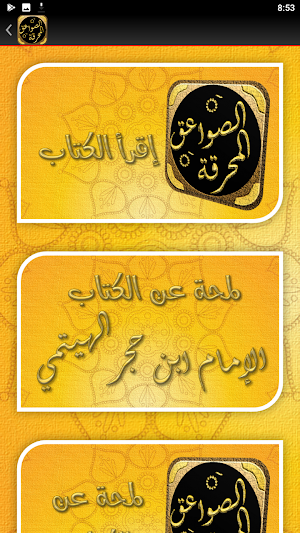 8:53
إقرأ الكتاب
الصواعق
المحرقة
لمحة عن الكتاب
الإمام ابن حجر الهيتمي
لمحة عن
الصواعق